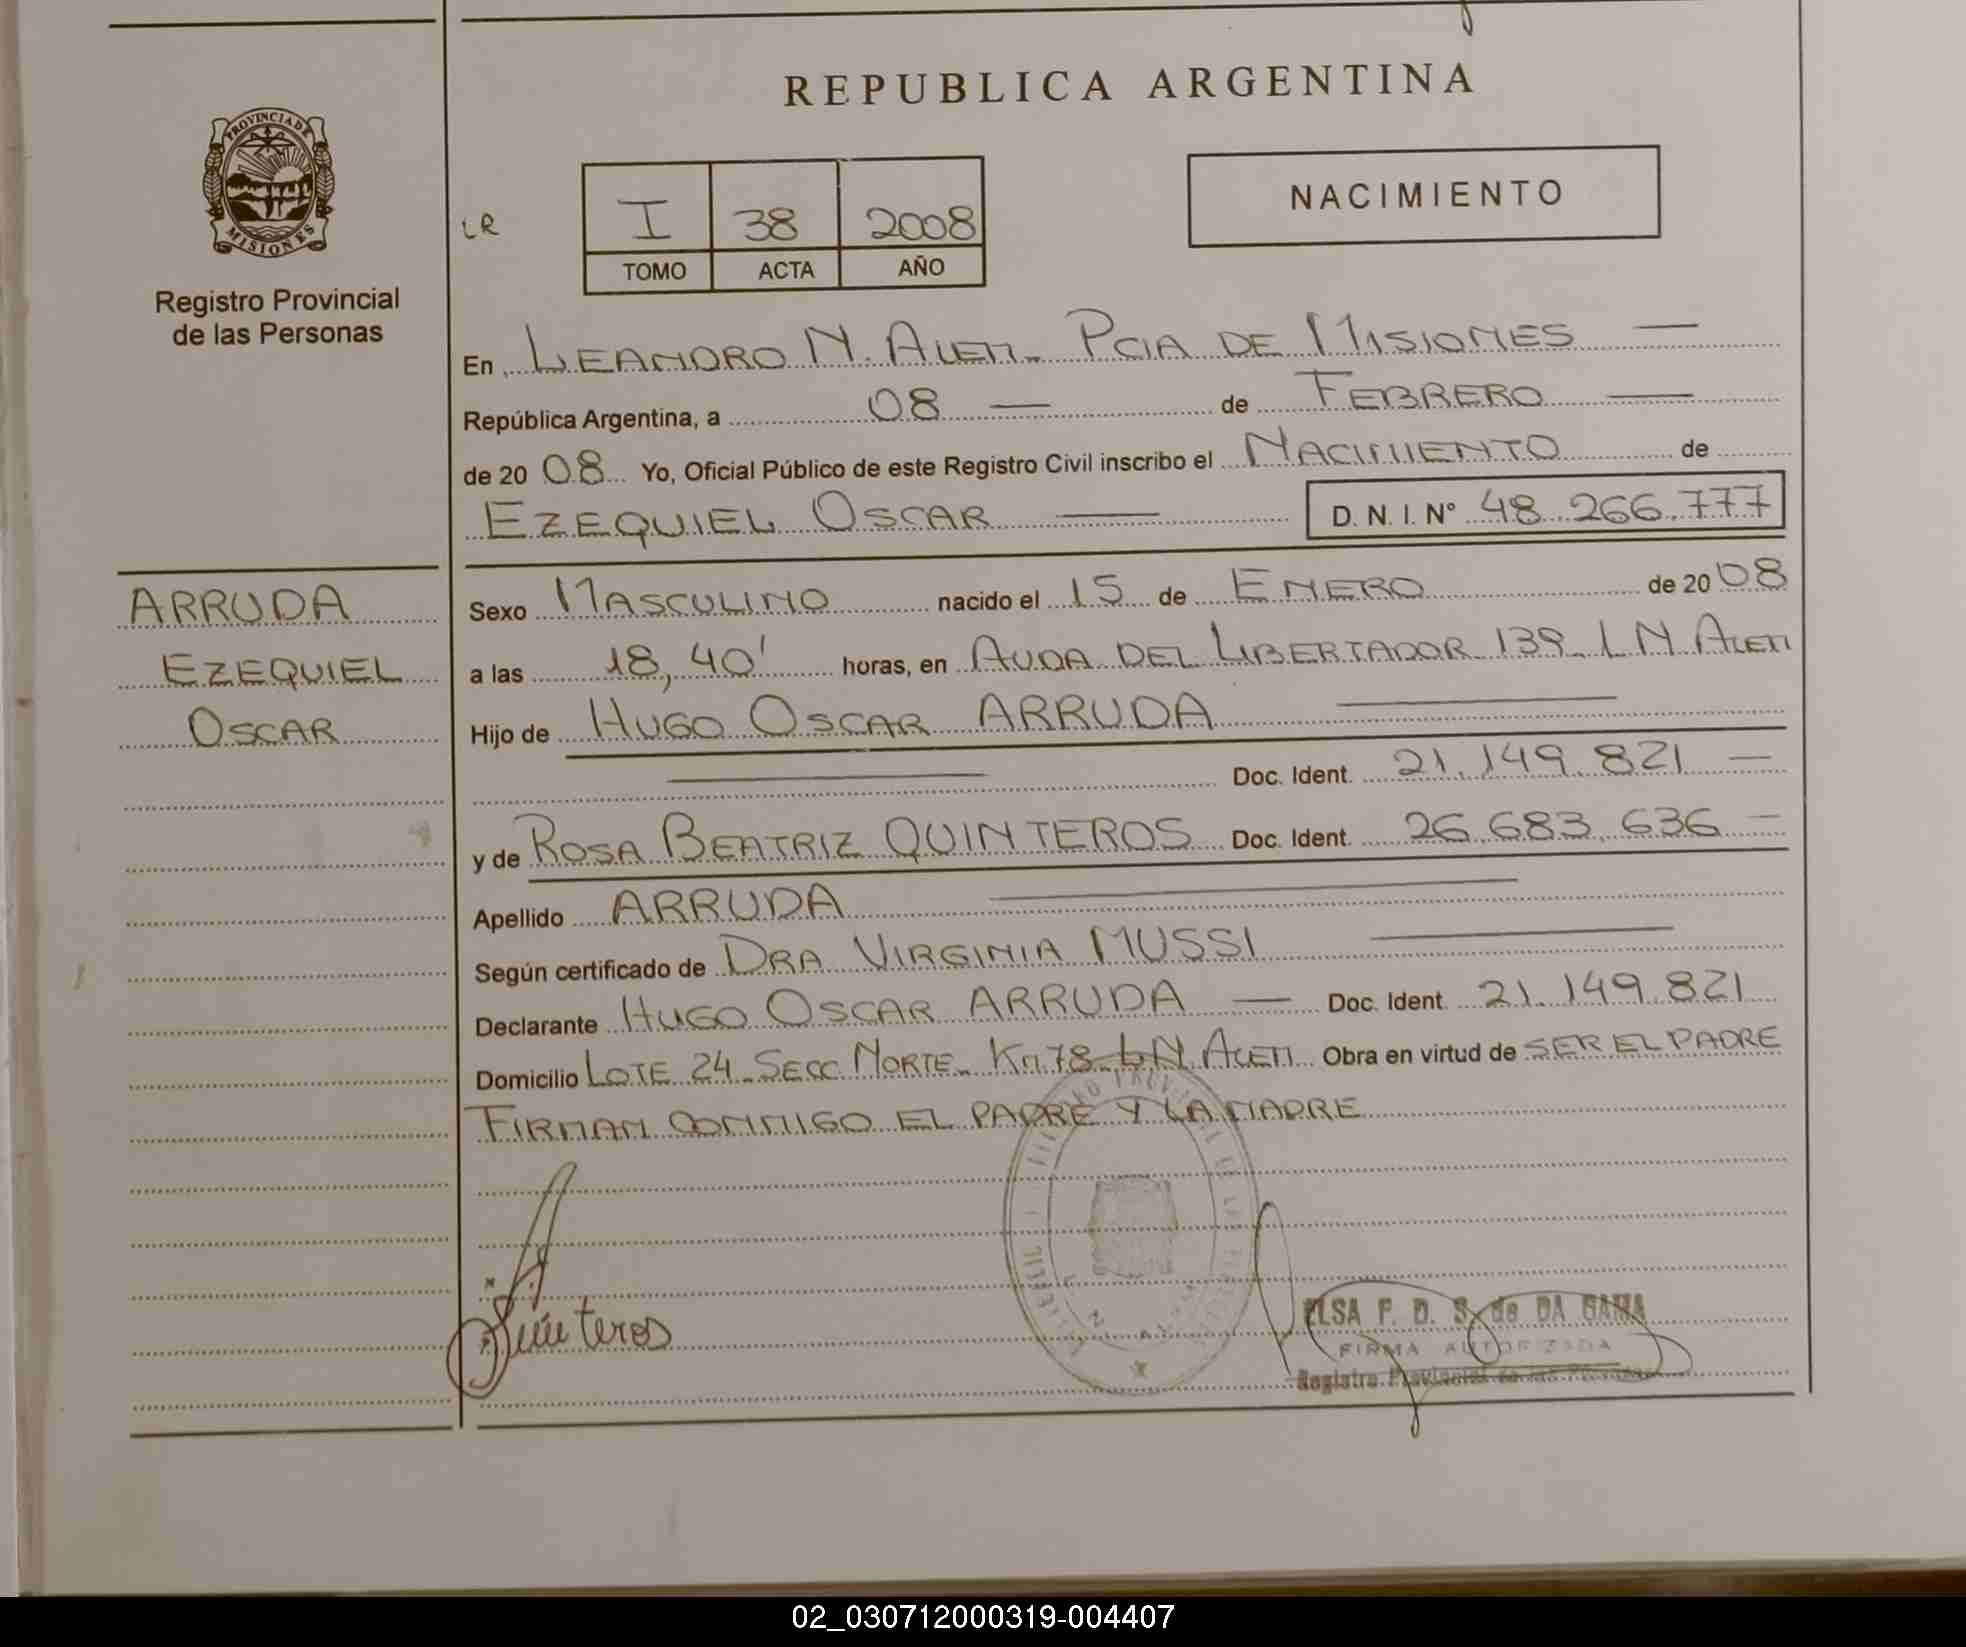 REPUBLICA ARGENTINA
PROVINCIA DE
MISIONES
Registro Provincial
de las Personas
NACIMIENTO
LR
I 38 2008
TOMO ACTA AÑO
En LEANDRO N. ALEM. PCIA DE MISIONES —
República Argentina, a 08 — de FEBRERO —
de 20 08 Yo, Oficial Público de este Registro Civil inscribo el NACIMIENTO de
EZEQUIEL OSCAR — D. N. I. N° 48.266.777
ARRUDA
EZEQUIEL
OSCAR
Sexo MASCULINO nacido el 15 de ENERO de 20 08
a las 18,40' horas, en AVDA DEL LIBERTADOR 139. L N ALEM
Hijo de HUGO OSCAR ARRUDA —
— Doc. Ident. 21.149.821 —
y de ROSA BEATRIZ QUINTEROS Doc. Ident. 26.683.636 —
Apellido ARRUDA —
Según certificado de DRA VIRGINIA MUSSI —
Declarante HUGO OSCAR ARRUDA — Doc. Ident. 21.149.821
Domicilio LOTE 24 SECC NORTE. Km 78. L N. ALEM Obra en virtud de SER EL PADRE
FIRMAN CONMIGO EL PADRE Y LA MADRE
Quinteros
ELSA F. D. S. de DA GAMA
FIRMA AUTORIZADA
Registro Provincial de las Personas
02_030712000319-004407